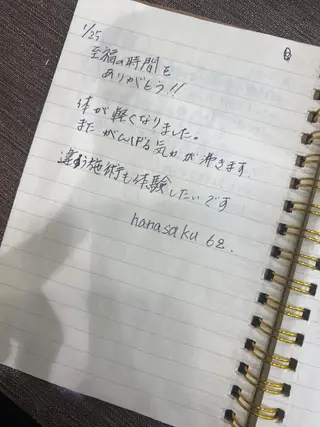 1/25.
至福の時間を
ありがとう!!
体が軽くなりました。
またがんばる気力が沸きます
違う施術も体験したいです
hanasaku 62.